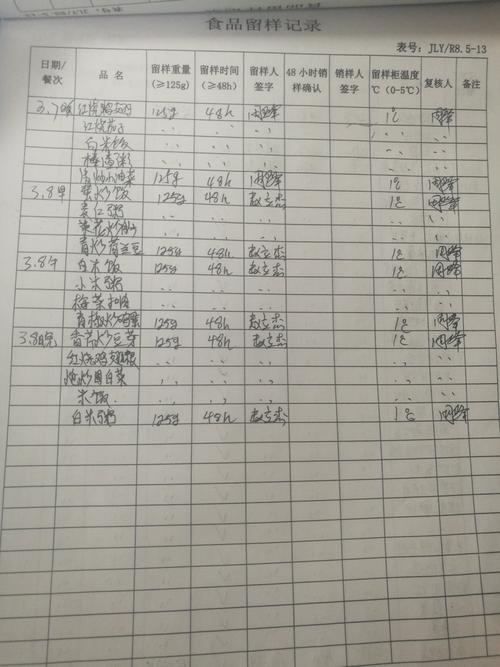 食品留样记录
表号：JLY/R8.5-13
日期/餐次 品名 留样重量(≥125g) 留样时间(≥48h) 留样人签字 48小时销样确认 销样人签字 留样柜温度℃(0-5℃) 复核人 备注
3.7晚 红烧 125g 48h 1℃
红烧茄子 〃 〃 〃 〃 〃
白米饭 〃 〃 〃 〃 〃
〃 〃 〃 〃 〃
清炒小油菜 125g 48h 1℃
3.8早 蛋炒饭 125g 48h 赵立杰 1℃
〃 〃 〃 〃 〃
〃 〃 〃 〃 〃
清炒荷兰豆 125g 48h 赵立杰 1℃
3.8午 白米饭 125g 48h 赵立杰 1℃
小米粥 〃 〃 〃 〃 〃
梅菜扣肉 〃 〃 〃 〃 〃
青椒炒鸡蛋 125g 48h 赵立杰 1℃
3.8晚 香芹炒豆芽 125g 48h 赵立杰 1℃
红烧鸡翅根 〃 〃 〃 〃 〃
炝炒圆白菜 〃 〃 〃 〃 〃
米饭 〃 〃 〃 〃 〃
白米粥 125g 48h 赵立杰 1℃